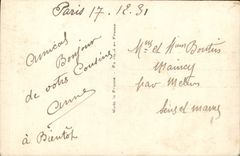 Paris 17.12.31
Amical
Bonjour
de votre Cousine
Anne
à Bientôt
Mrs et Mme Boutin
Maincy
par Melun
Seine et Marne